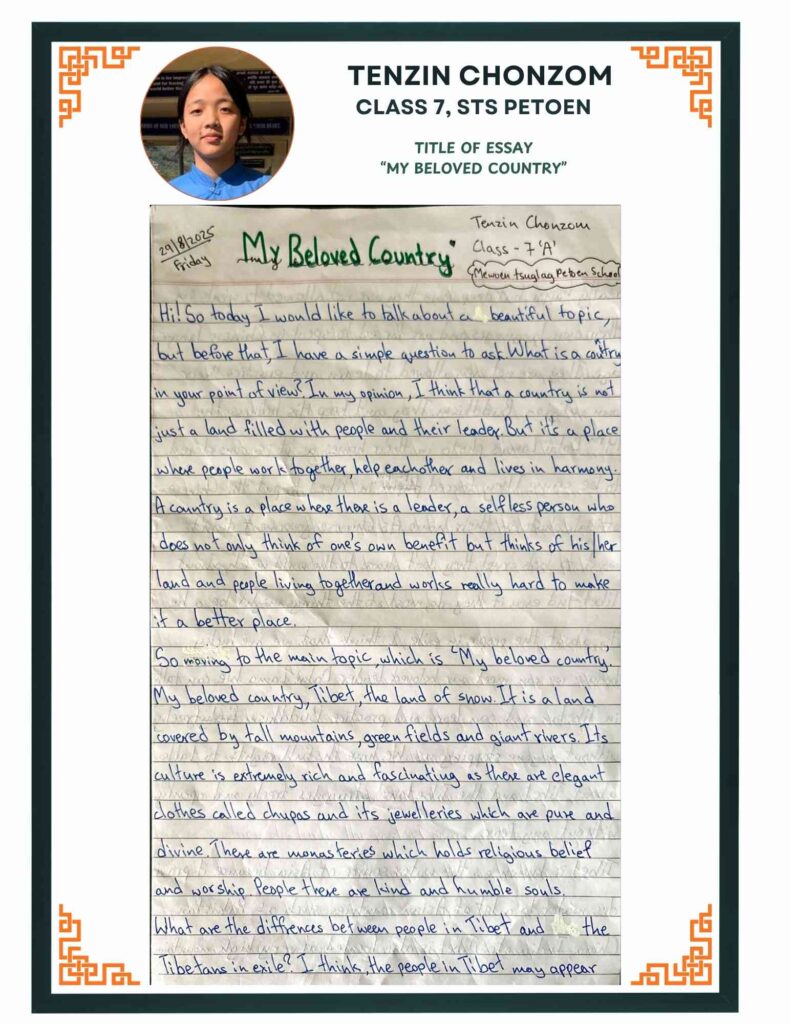 TENZIN CHONZOM
CLASS 7, STS PETOEN
TITLE OF ESSAY
“MY BELOVED COUNTRY”
29/8/2025
Friday
My Beloved Country"
Tenzin Chonzom
Class - 7 'A'
Mewoen tsuglag Petoen School
Hi! So today I would like to talk about a beautiful topic,
but before that, I have a simple question to ask. What is a coutry
in your point of view? In my opinion, I think that a country is not
just a land filled with people and their leader. But it's a place
where people work together, help eachother and lives in harmony.
A country is a place where there is a leader, a selfless person who
does not only think of one's own benefit but thinks of his/her
land and people living together and works really hard to make
it a better place.
So moving to the main topic, which is 'My beloved country'.
My beloved country, Tibet, the land of snow. It is a land
covered by tall mountains, green fields and giant rivers. Its
culture is extremely rich and fascinating as there are elegant
clothes called chupas and its jewelleries which are pure and
divine. There are monasteries which holds religious belief
and worship. People there are kind and humble souls.
What are the diffrences between people in Tibet and the
Tibetans in exile? I think, the people in Tibet may appear